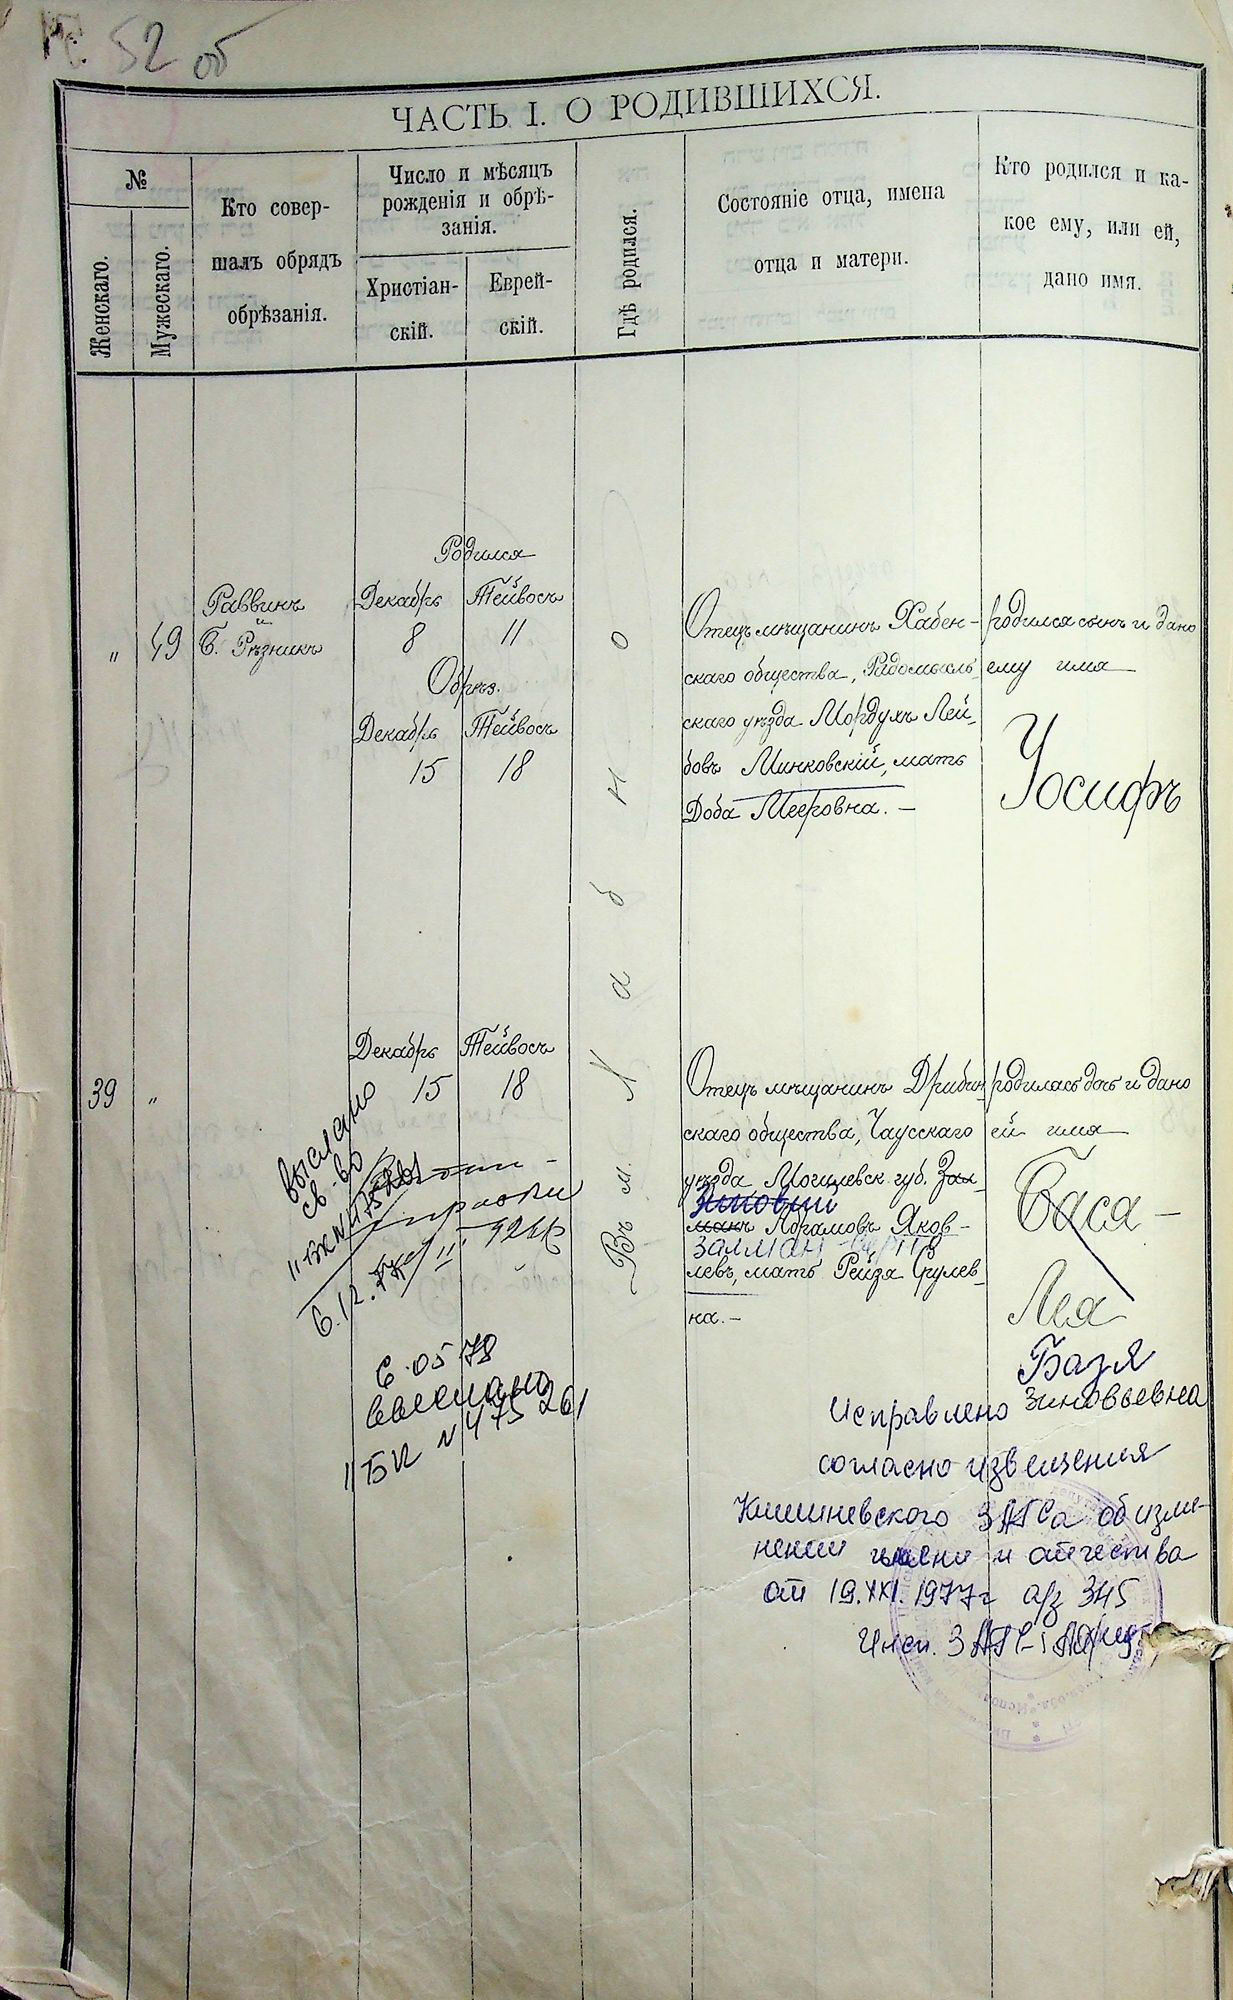 52 об
ЧАСТЬ I. О РОДИВШИХСЯ.
№
Женскаго.
Мужескаго.
Кто совер-
шалъ обрядъ
обрѣзанія.
Число и мѣсяцъ
рожденія и обрѣ-
занія.
Христіан-
скій.
Еврей-
скій.
Гдѣ родился.
Состояніе отца, имена
отца и матери.
Кто родился и ка-
кое ему, или ей,
дано имя.
Родился
Раввинъ
и
Б. Рѣзникъ
Декабрь Тейвосъ
" 49
8 11
Обрѣз.
Декабрь Тейвосъ
15 18
Въ м. Хабно
Отецъ мѣщанинъ Хабен-
скаго общества, Радомысль-
скаго уѣзда Мордухъ Лей-
бовъ Минковскій, мать
Доба Мееровна. —
родился сынъ и дано
ему имя
Іосифъ
Декабрь Тейвосъ
39 "
15 18
Отецъ мѣщанинъ Дрибин-
скаго общества, Чаусскаго
уѣзда Могилевск. губ. Зал-
Зиновий
манъ Абрамовъ Яков-
Залман
левъ, мать Рейзя Срулев-
на. —
родилась дочь и дано
ей имя
Бася —
Лея
Базя
Зиновьевна
выслано
св-во
6.05.78
выслано
II БК N 475261
Исправлено
согласно извещения
Кишиневского ЗАГСа об изме-
нении имени и отчества
от 19.XII.1977г а/з 345
Инсп. ЗАГС